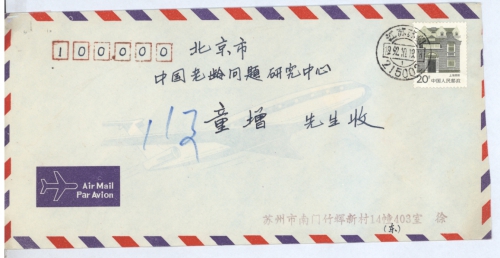 100000
北京市
中国老龄问题研究中心
113
童增 先生收
20分 中国人民邮政
1992.10.12
215002
Air Mail
Par Avion
苏州市南门竹辉新村14幢403室 徐
(东)